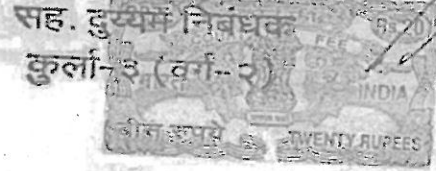 सह. दुय्यम निबंधक
कुर्ला-३ (वर्ग-२)
Rs.20
INDIA
बीस रुपये
TWENTY RUPEES